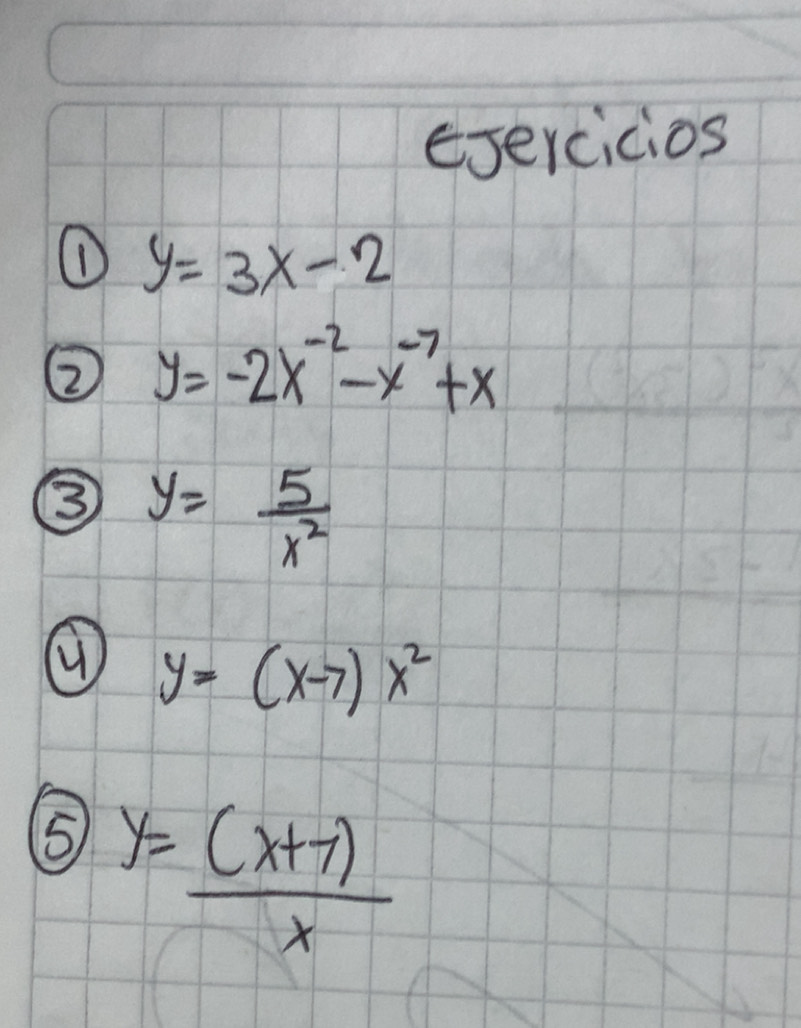 Ejercicios
① y = 3x - 2
② y = -2x⁻² - x⁻⁷ + x
③ y = 5/x²
④ y = (x-7) x²
⑤ y = (x+7)/x